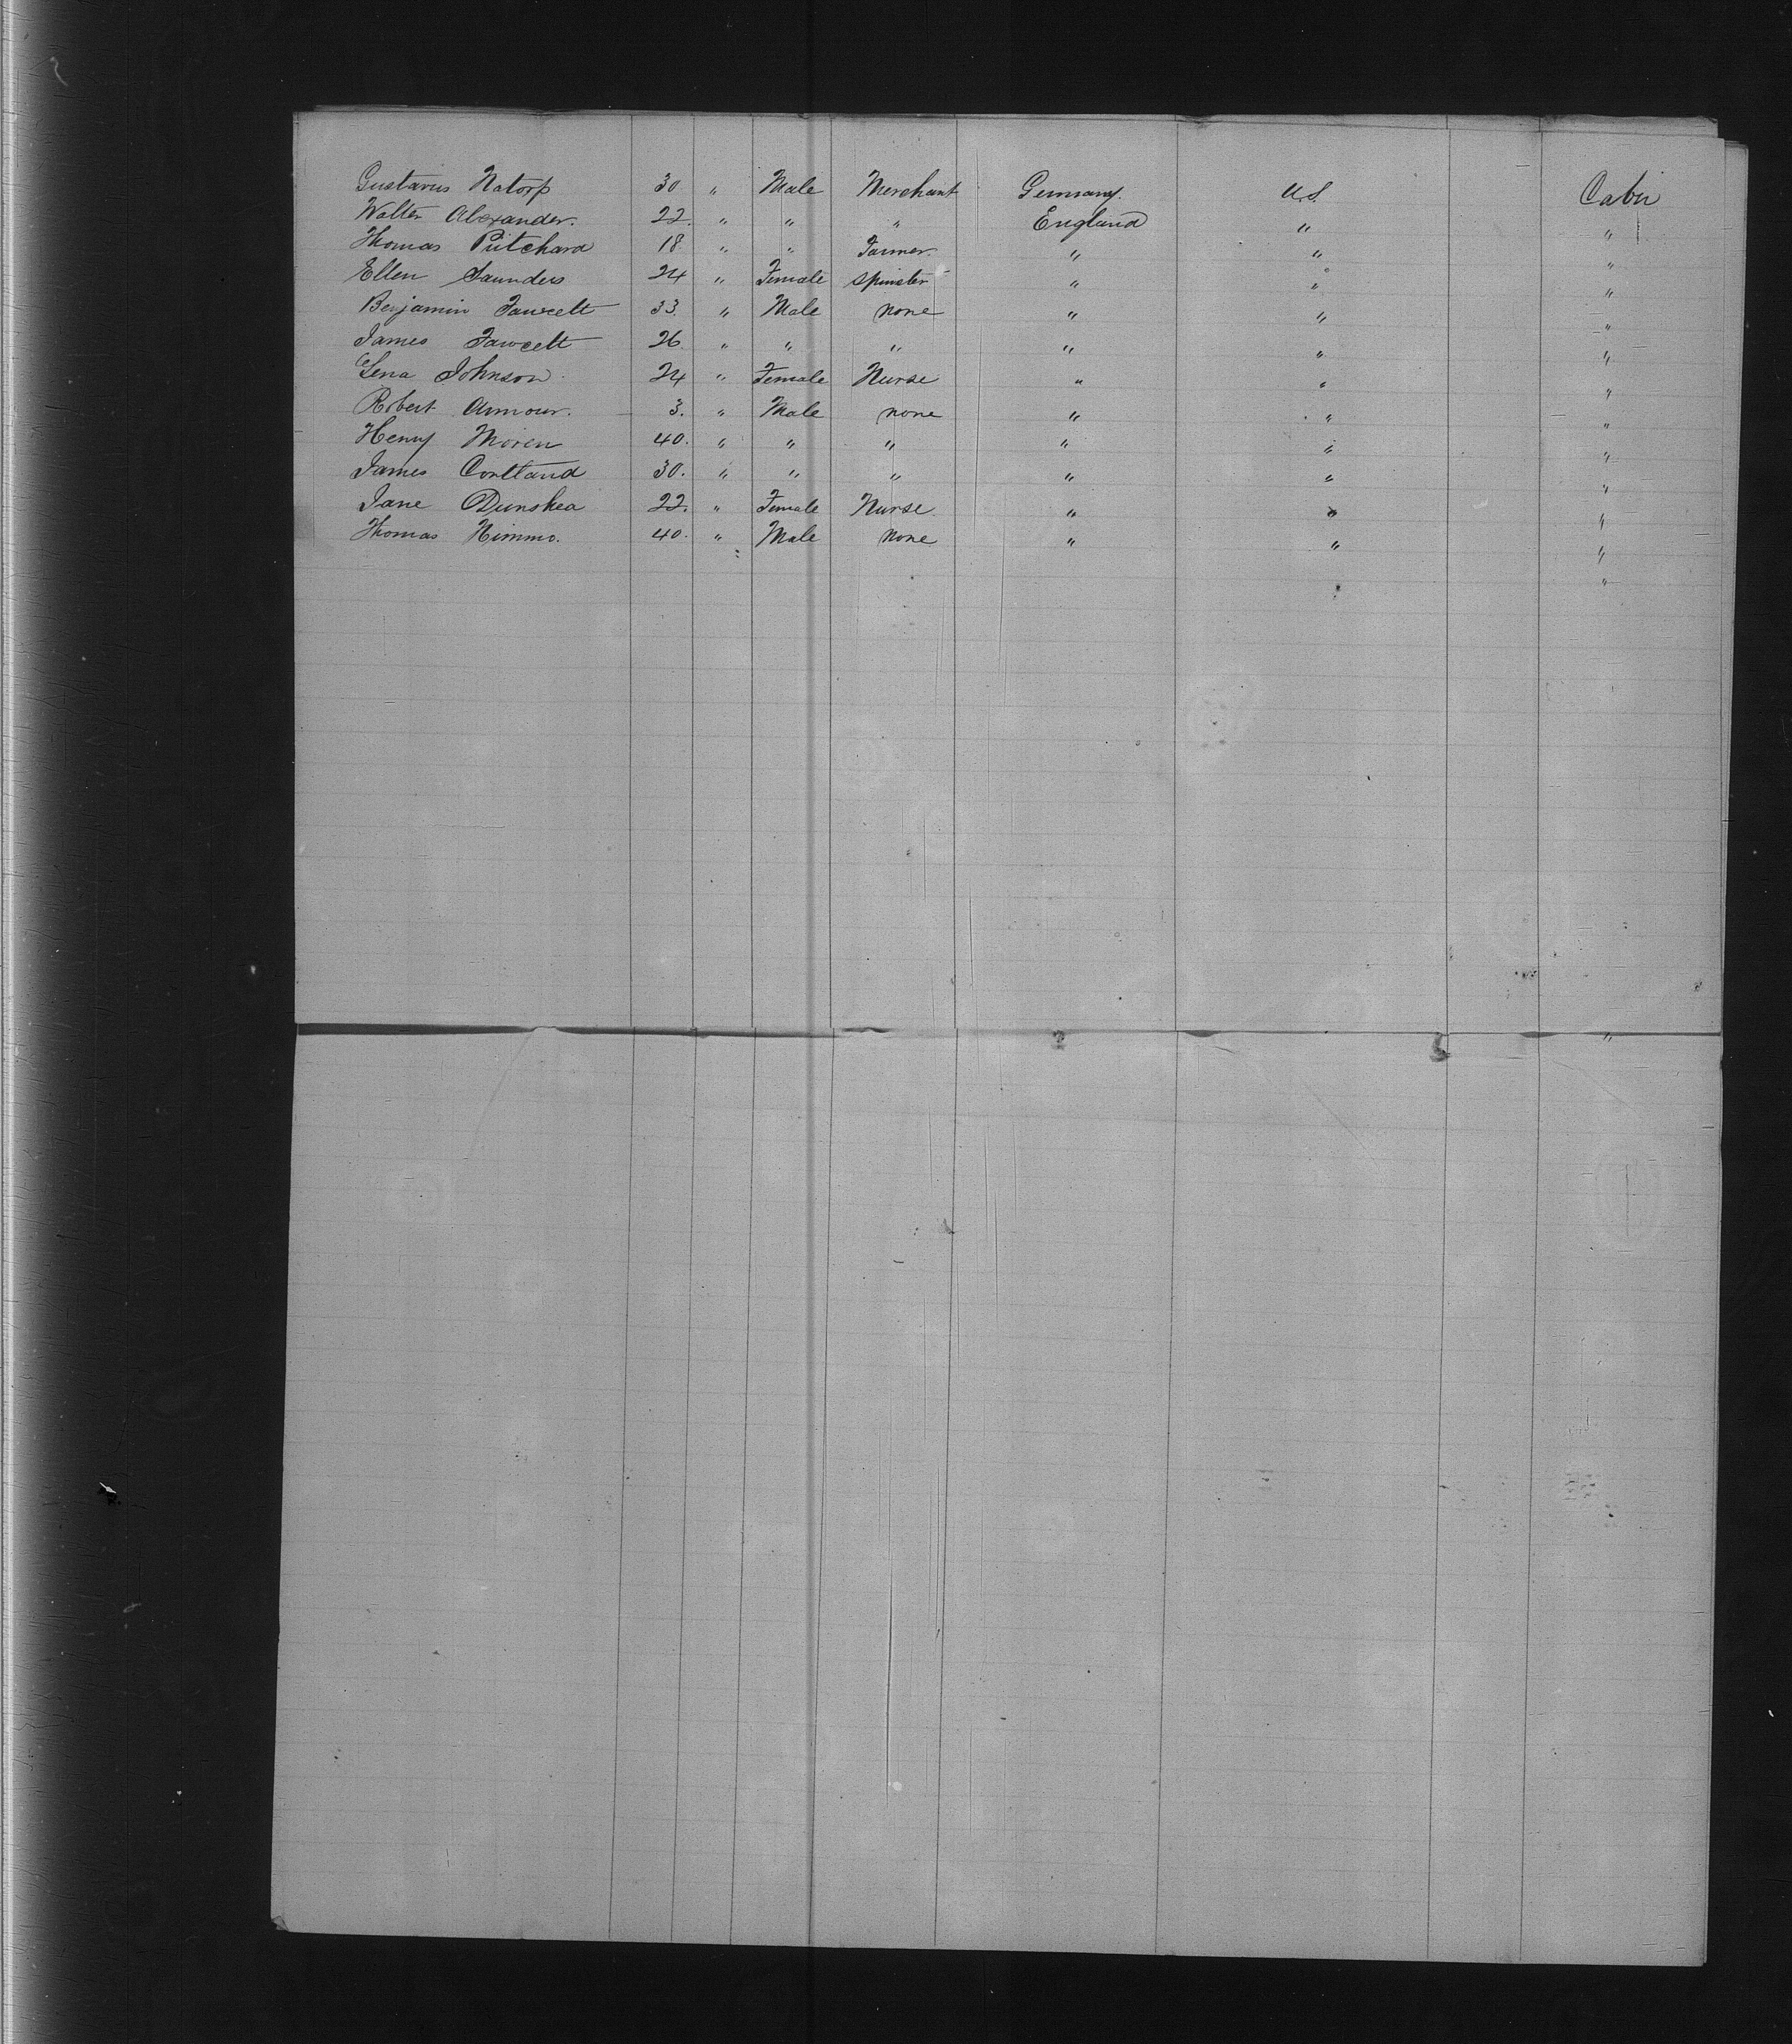 Gustavus Natorp 30 " Male Merchant Germany. U.S. Cabin
Walter Alexander. 22. " " " England " "
Thomas Pritchard 18. " " Farmer. " " "
Ellen Saunders 24 " Female Spinster " " "
Benjamin Fawcett 33. " Male none " " "
James Fawcett 26. " " " " " "
Lena Johnson 24 " Female Nurse " " "
Robert Armour. 3. " Male none " " "
Henry Moren 40. " " " " " "
James Cortland 30. " " " " " "
Jane Dunshea 22. " Female Nurse. " " "
Thomas Nimmo. 40. " Male none " " "
"